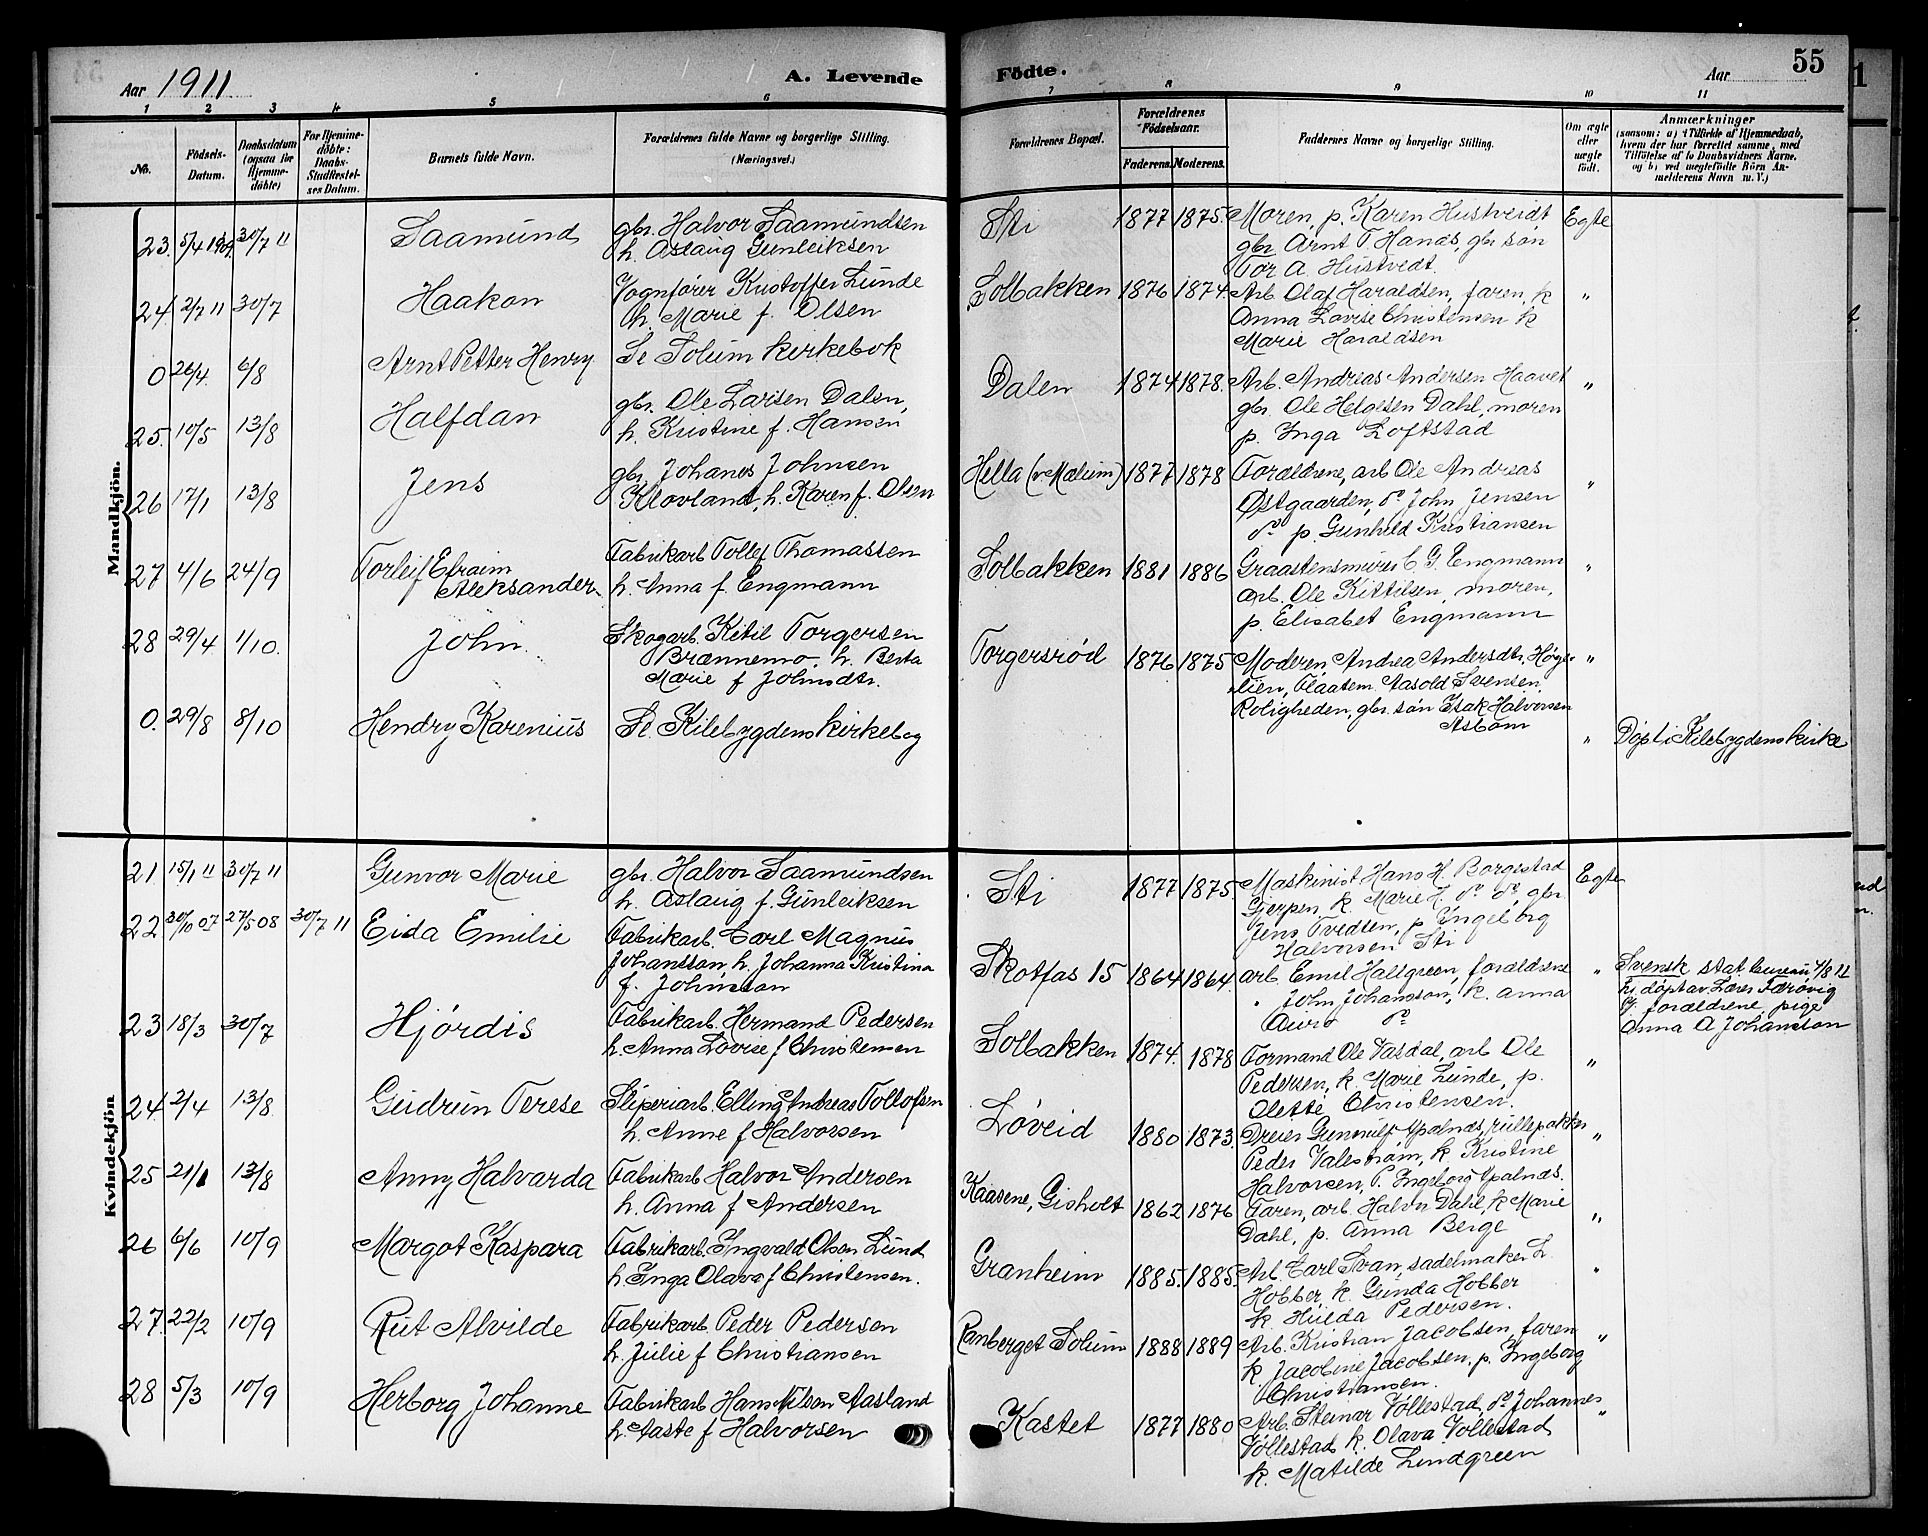 Aar 1911.
A. Levende
Födte.
Aar
55
1 2 3 4 5 6 7 8 9 10 11
No.
Födsels-Datum.
Daabsdatum (ogsaa for Hjemme-döbte)
For Hjemme-döbte: Daabs-Stadfæstel-ses Datum.
Barnets fulde Navn.
Forældrenes fulde Navne og borgerlige Stilling.
(Næringsvei.)
Forældrenes Bopæl.
Forældrenes Födselsaar.
Faderens. Moderens.
Faddernes Navne og borgerlige Stilling.
Om ægte eller uægte födt.
Anmærkninger
(saasom: a) i Tilfælde af Hjemmedaab, hvem der har forrettet samme, med Tilföielse af to Daabsvidners Navne, og b) ved uægtefödte Börn An-melderens Navn m. V.)
Mandkjön.
23. 5/4 1909. 30/7 11 Saamund gbr. Halvor Saamundsen
h. Aslaug Gunleiksen
Sti 1877 1875. Moren, p. Karen Hustveidt Egte
gbr Arnt T Hanås, gbr søn
Tor A. Hustvedt.
24 2/7 11 30/7 Haakon Vognfører Kristoffer Lunde
h. Marie f. Olsen
Solbakken 1876 1874. Arb. Olaf Haraldsen, faren, k "
Anna Lovise Christensen k
Marie Haraldsen
0 26/4 6/8 Arnt Petter Henry Se Solum kirkebok
25. 10/5 13/8 Halfdan gbr. Ole Larsen Dalen,
h. Kristine f. Hansen
Dalen 1874 1878. Arb. Andreas Andersen Haavet "
gbr. Ole Helgesen Dahl, moren
p. Inga Loftstad
26 17/1 13/8 Jens gbr. Johanes Johnsen
Klovland, h. Karen f. Olsen
Hella (v Mælum) 1877 1878 Forældrene, arb Ole Andreas "
Østgaarden, do John Jensen
do p. Gunhild Kristiansen
27 4/6 24/9 Torleif Efraim
Aleksander
Fabrikarb Tollef Thomassen
h. Anna f. Engmann
Solbakken 1881 1886 Graastensmurer C G. Engmann "
arb. Ole Kittilsen, moren,
p. Elisabet Engmann
28 29/4 1/10. John Skogarb. Kitil Torgersen
Brænnemo. h. Berta
Marie f Johnsdtr.
Torgersrød 1876 1875 Moderen, Andrea Andersdtr. Høge- "
lien, Flaatem. Aasold Svensen
Roligheden, gbr. søn Isak Halvorsen
Asbom
0. 29/8 8/10 Hendry Karenius Se Kilebygdens kirkebog
" Døpt i Kilebygdens kirke
Kvindekjön
21 15/1 11 30/7 11 Gunvor Marie gbr. Halvor Saamundsen
h. Aslaug f. Gunleiksen
Sti 1877 1875. Maskinist Hans H. Borgestad Egte
Gjerpen, k. Marie do do, gbr.
Jens Tvedten, p Ingeborg
Halvorsen Sti
22 30/10 07 27/5 08 30/7 11 Eida Emilie Fabrikarb. Carl Magnus
Johansson, h. Johanna Kristina
f. Johnsson
Skotfos 15 1864 1864 arb. Emil Hallgreen, forældrene "
" John Johansson, k. Anna
do
Svensk stat
hj. døpt av Lærer Færøvig
forældrene pige
Anna A Johansson
23 18/3 30/7 Hjørdis Fabrikarb. Hermand Pedersen
h. Anna Lovise f Christensen
Solbakken 1874. 1878 Formand Ole Vasdal, arb Ole "
Pedersen, k. Marie Lunde, p.
Olette Christensen.
24. 2/4 13/8. Gudrun Terese Sliperiarb. Elling Andreas Tollofsen
h. Anne f Halvorsen
Løveid 1880 1873. Dreier Gunnulf Apalnæs, rullepakker "
Peder Valestrøm, k Kristine
Halvorsen, p. Ingeborg Apalnæs.
25 21/1 13/8 Anny Halvarda Fabrikarb Halvor Andersen
h. Anna f Andersen
Kaasene, Gisholt 1862 1876 Faren, arb. Halvor Dahl, k Marie "
Dahl, p. Anna Berge
26 6/6 10/9 Margot Kaspara Fabrikarb. Ingvald Olsen Lund
h Inga Olava f Christensen.
Granheim 1885. 1885. Arb. Carl Svan, sadelmaker L. "
Hobber k. Gunda Hobber
k. Hulda Pedersen.
27. 22/2 10/9 Rut Alvilde Fabrikarb. Peder Pedersen
h. Julie f Christiansen
Ranberget Solum 1888 1889 Arb. Kristian Jacobsen, faren "
k. Jacobine Jacobsen, p. Ingeborg
Christiansen.
28 5/3 10/9 Herborg Johanne Fabrikarb Hans Nilson Aasland
h. Aaste f Halvorsen
Kastet 1877 1880 Arb. Steinar Vøllestad, do Johannes "
Vøllestad k. Olava Vollestad
k. Matilde Lindgreen